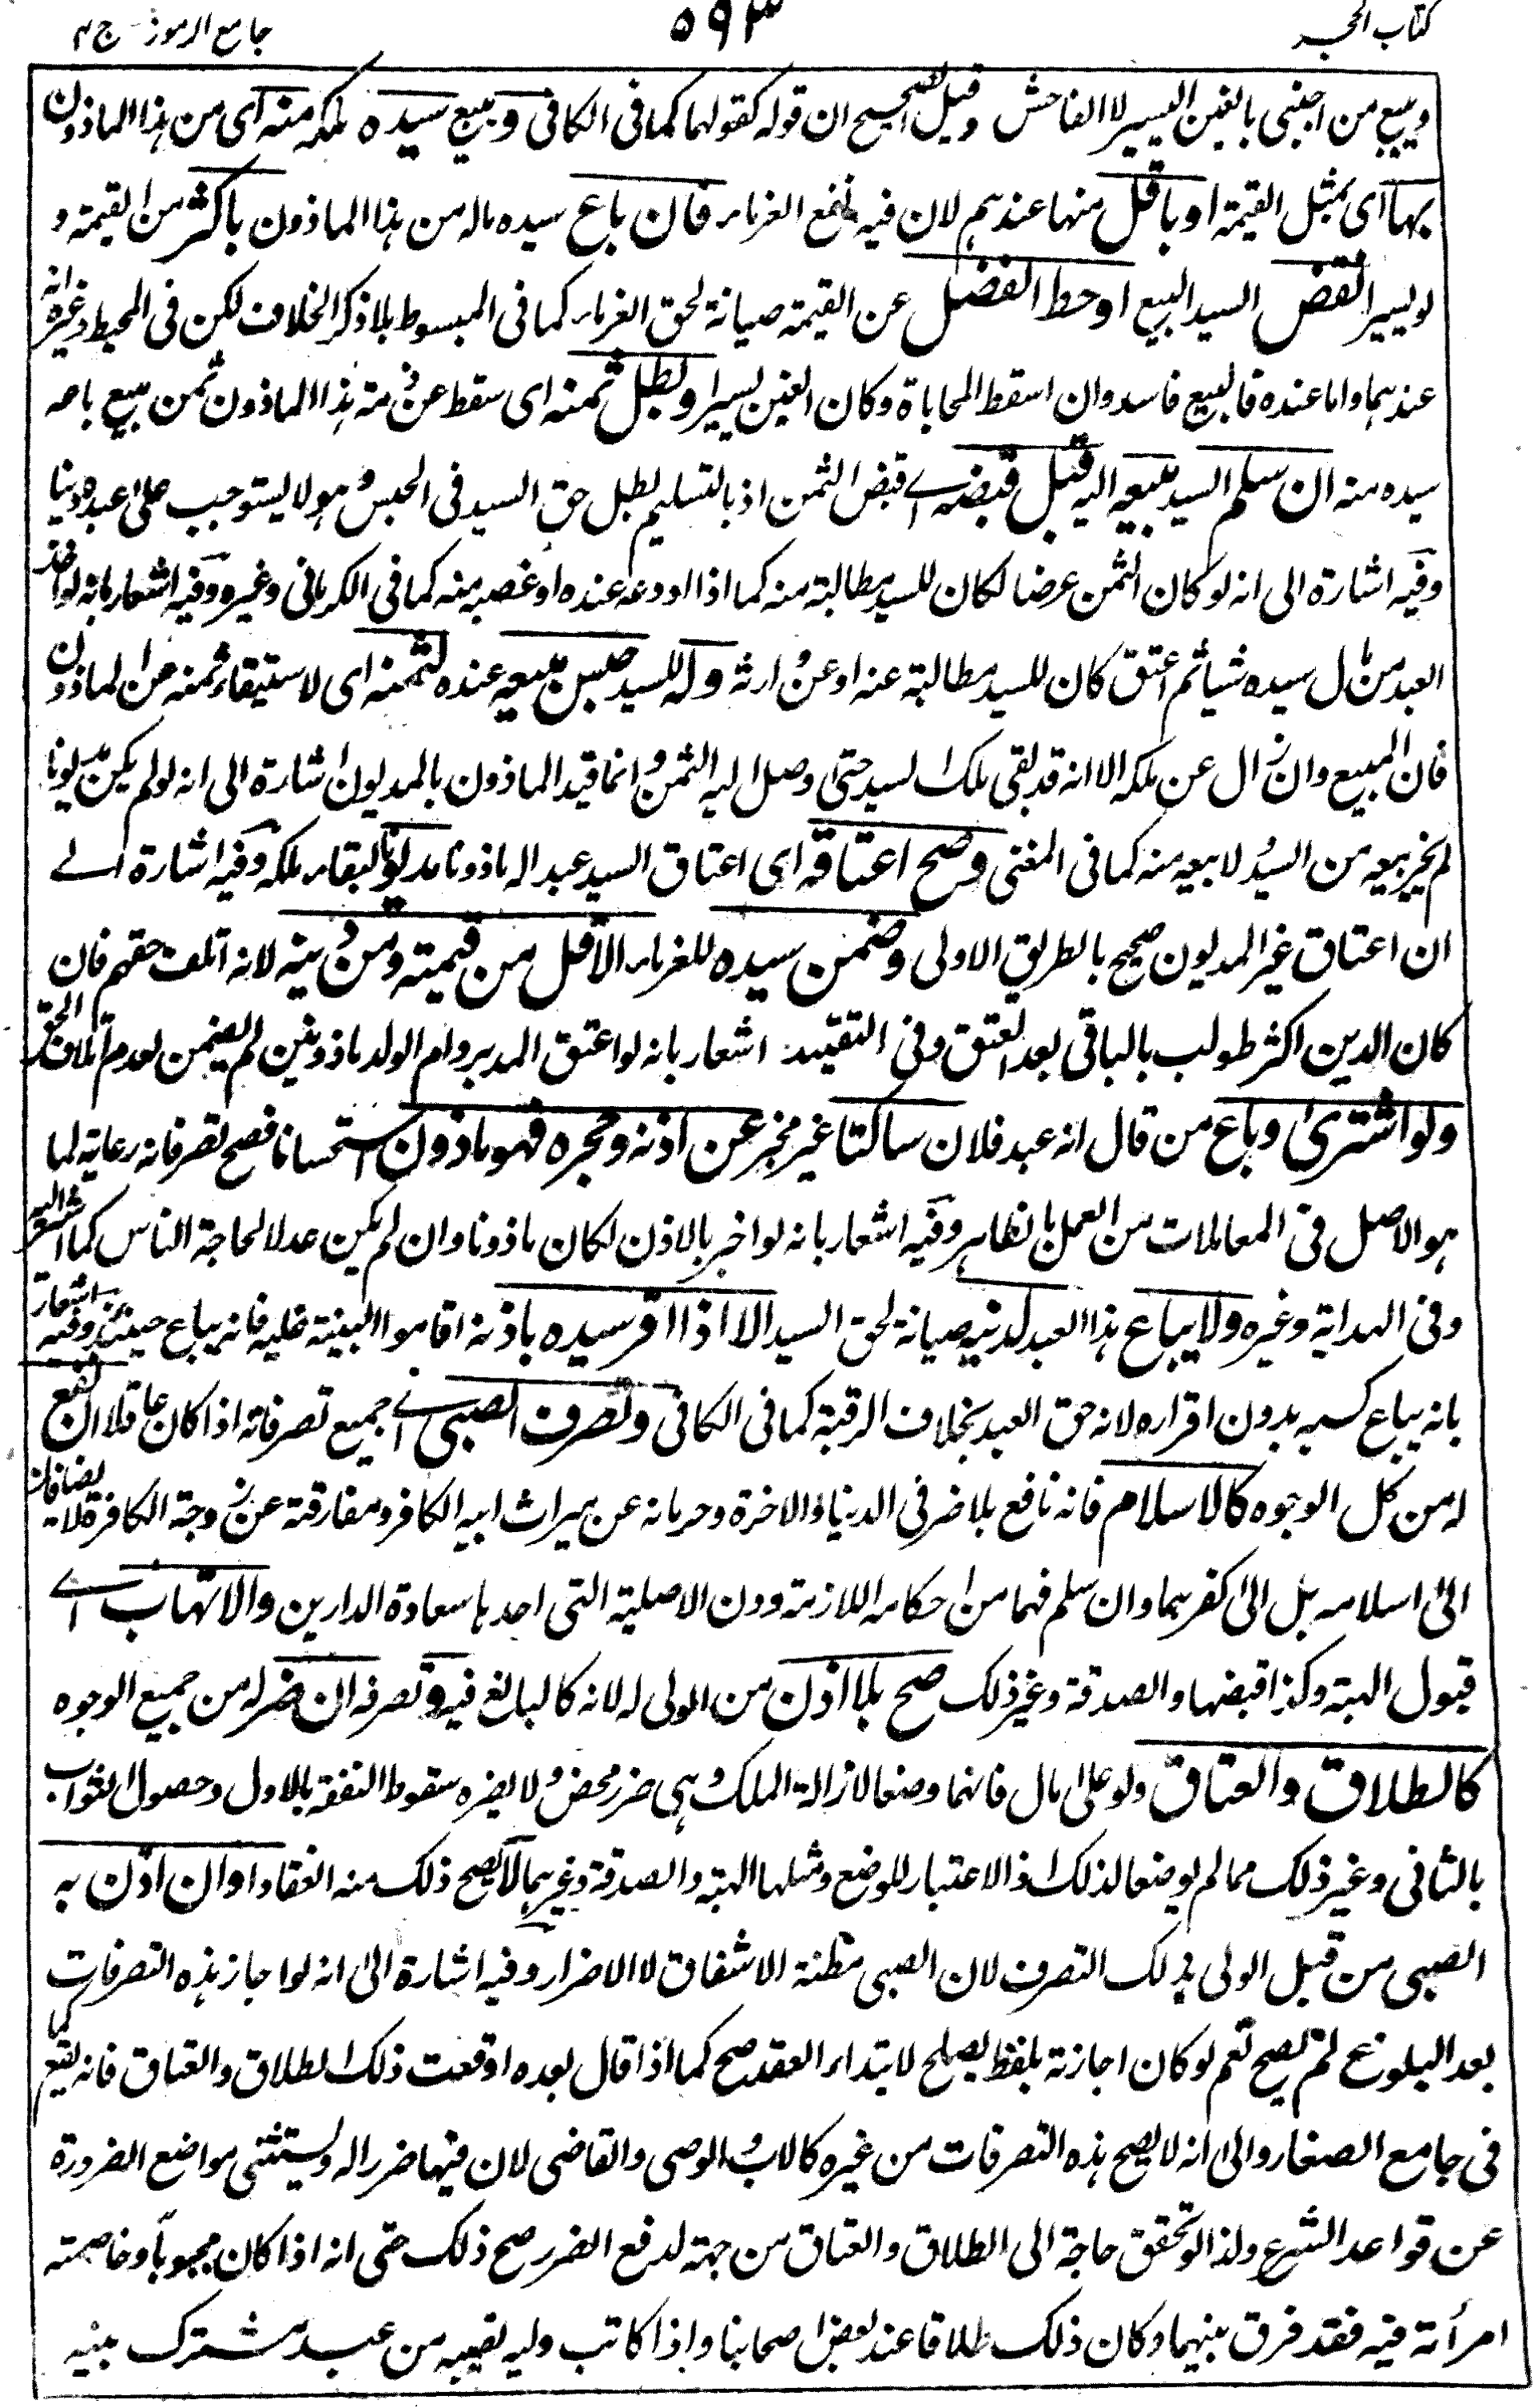 كتاب الحجر
٥٩٣
جامع الرموز - ج ٣
ويبيع من اجنبي بالغبن اليسير لا الفاحش وقيل الصحيح ان قوله كقولهما كما في الكافي وبيع سيده ملكه منه اى من هذا الماذون
بها اى بمثل القيمة او باقل منها عندهم لان فيه نفع الغرماء فان باع سيده ماله من هذا الماذون باكثر من القيمة و
لو يسيرا نقض السيد البيع او حط الفضل عن القيمة صيانة لحق الغرماء كما في المبسوط بلا ذكر الخلاف لكن في المحيط وغيره انه
عندهما واما عنده فالبيع فاسد وان اسقط المحاباة وكان الغبن يسيرا وبطل ثمنه اى سقط عن ذمته هذا الماذون ثمن مبيع باعه
سيده منه ان سلم السيد مبيعه اليه قبل قبضه اے قبض الثمن اذ بالتسليم بطل حق السيد في الحبس وهو لا يستوجب على عبده دينا
وفيه اشارة الى انه لو كان الثمن عرضا لكان للسيد مطالبته منه كما اذا اودعه عنده او غصبه منه كما في الكرماني وغيره وفيه اشعار بانه لو اخذ
العبد من مال سيده شيئا ثم اعتق كان للسيد مطالبته عنه او عن وارثه وله للسيد حبس مبيعه عنده لثمنه اى لاستيفاء ثمنه من الماذون
فان المبيع وان زال عن ملكه الا انه قد بقى ملك السيد حتى وصل اليه الثمن وانما قيد الماذون بالمديون اشارة الى انه لو لم يكن مديونا
لم يجز بيعه من السيد ولا بيعه منه كما في المغني وصح اعتاقه اى اعتاق السيد عبدا له ماذونا مديونا لبقاء ملكه وفيه اشارة الے
ان اعتاق غير المديون صحيح بالطريق الاولى وضمن سيده للغرماء الاقل من قيمته ومن دينه لانه اتلف حقهم فان
كان الدين اكثر طولب بالباقى بعد العتق وفي التقييد اشعار بانه لو اعتق المدبر وام الولد ماذونين لم يضمن لعدم اتلاف الحق
ولو اشترى وباع من قال انه عبد فلان ساكتا غير مخبر عن اذنه وحجره فهو ماذون استحسانا فصح تصرفاته رعاية لما
هو الاصل في المعاملات من العمل بالظاهر وفيه اشعار بانه لو اخبر بالاذن لكان ماذونا وان لم يكن عدلا لحاجة الناس كما اشير اليه
وفي الهداية وغيره ولا يباع هذا العبد لدينه صيانة لحق السيد الا اذا اقر سيده باذنه او اقاموا البينة عليه فانه يباع حينئذ وفيه اشعار
بانه يباع كسبه بدون اقراره لانه حق العبد بخلاف الرقبة كما في الكافي وتصرف الصبى اے جميع تصرفاته اذا كان عاقلا ان نفع
له من كل الوجوه كالاسلام فانه نافع بلا ضر في الدنيا والاخرة وحرمانه عن ميراث ابيه الكافر ومفارقته عن زوجة الكافرة لا يضافان
الى اسلامه بل الى كفرهما وان سلم فهما من احكامه اللازمة دون الاصلية التى احدها سعادة الدارين والاتهاب اے
قبول الهبة وكذا قبضها والصدقة وغير ذلك صح بلا اذن من الولى له لانه كالبالغ فيه وتصرفه ان ضر له من جميع الوجوه
كالطلاق والعتاق ولو على مال فانهما وضعا لازالة الملك وهى ضرر محض ولا يضره سقوط النفقة بالاول وحصول الثواب
بالثانى وغير ذلك مما لم يوضعا لذلك اذ الاعتبار للوضع ومثلها الهبة والصدقة وغيرهما لا يصح ذلك منه انعقادا وان اذن به
الصبى من قبل الولى بذلك التصرف لان الصبى مظنة الاشفاق لا الاضرار وفيه اشارة الى انه لو اجاز هذه التصرفات
بعد البلوغ لم يصح نعم لو كان اجازته بلفظ يصلح لابتداء العقد صح كما اذا قال بعده اوقعت ذلك الطلاق والعتاق فانه يقع كما
في جامع الصغار والى انه لا يصح هذه التصرفات من غيره كالاب والوصى والقاضى لان فيها ضررا له ويستثنى مواضع الضرورة
عن قواعد الشرع ولذا لو تحقق حاجة الى الطلاق والعتاق من جهة لدفع الضرر صح ذلك حتى انه اذا كان مجبوبا وخاصمته
امرأته فيه فقد فرق بينهما وكان ذلك طلاقا عند بعض اصحابنا واذا كاتب وليه نصيبه من عبد مشترك بينه